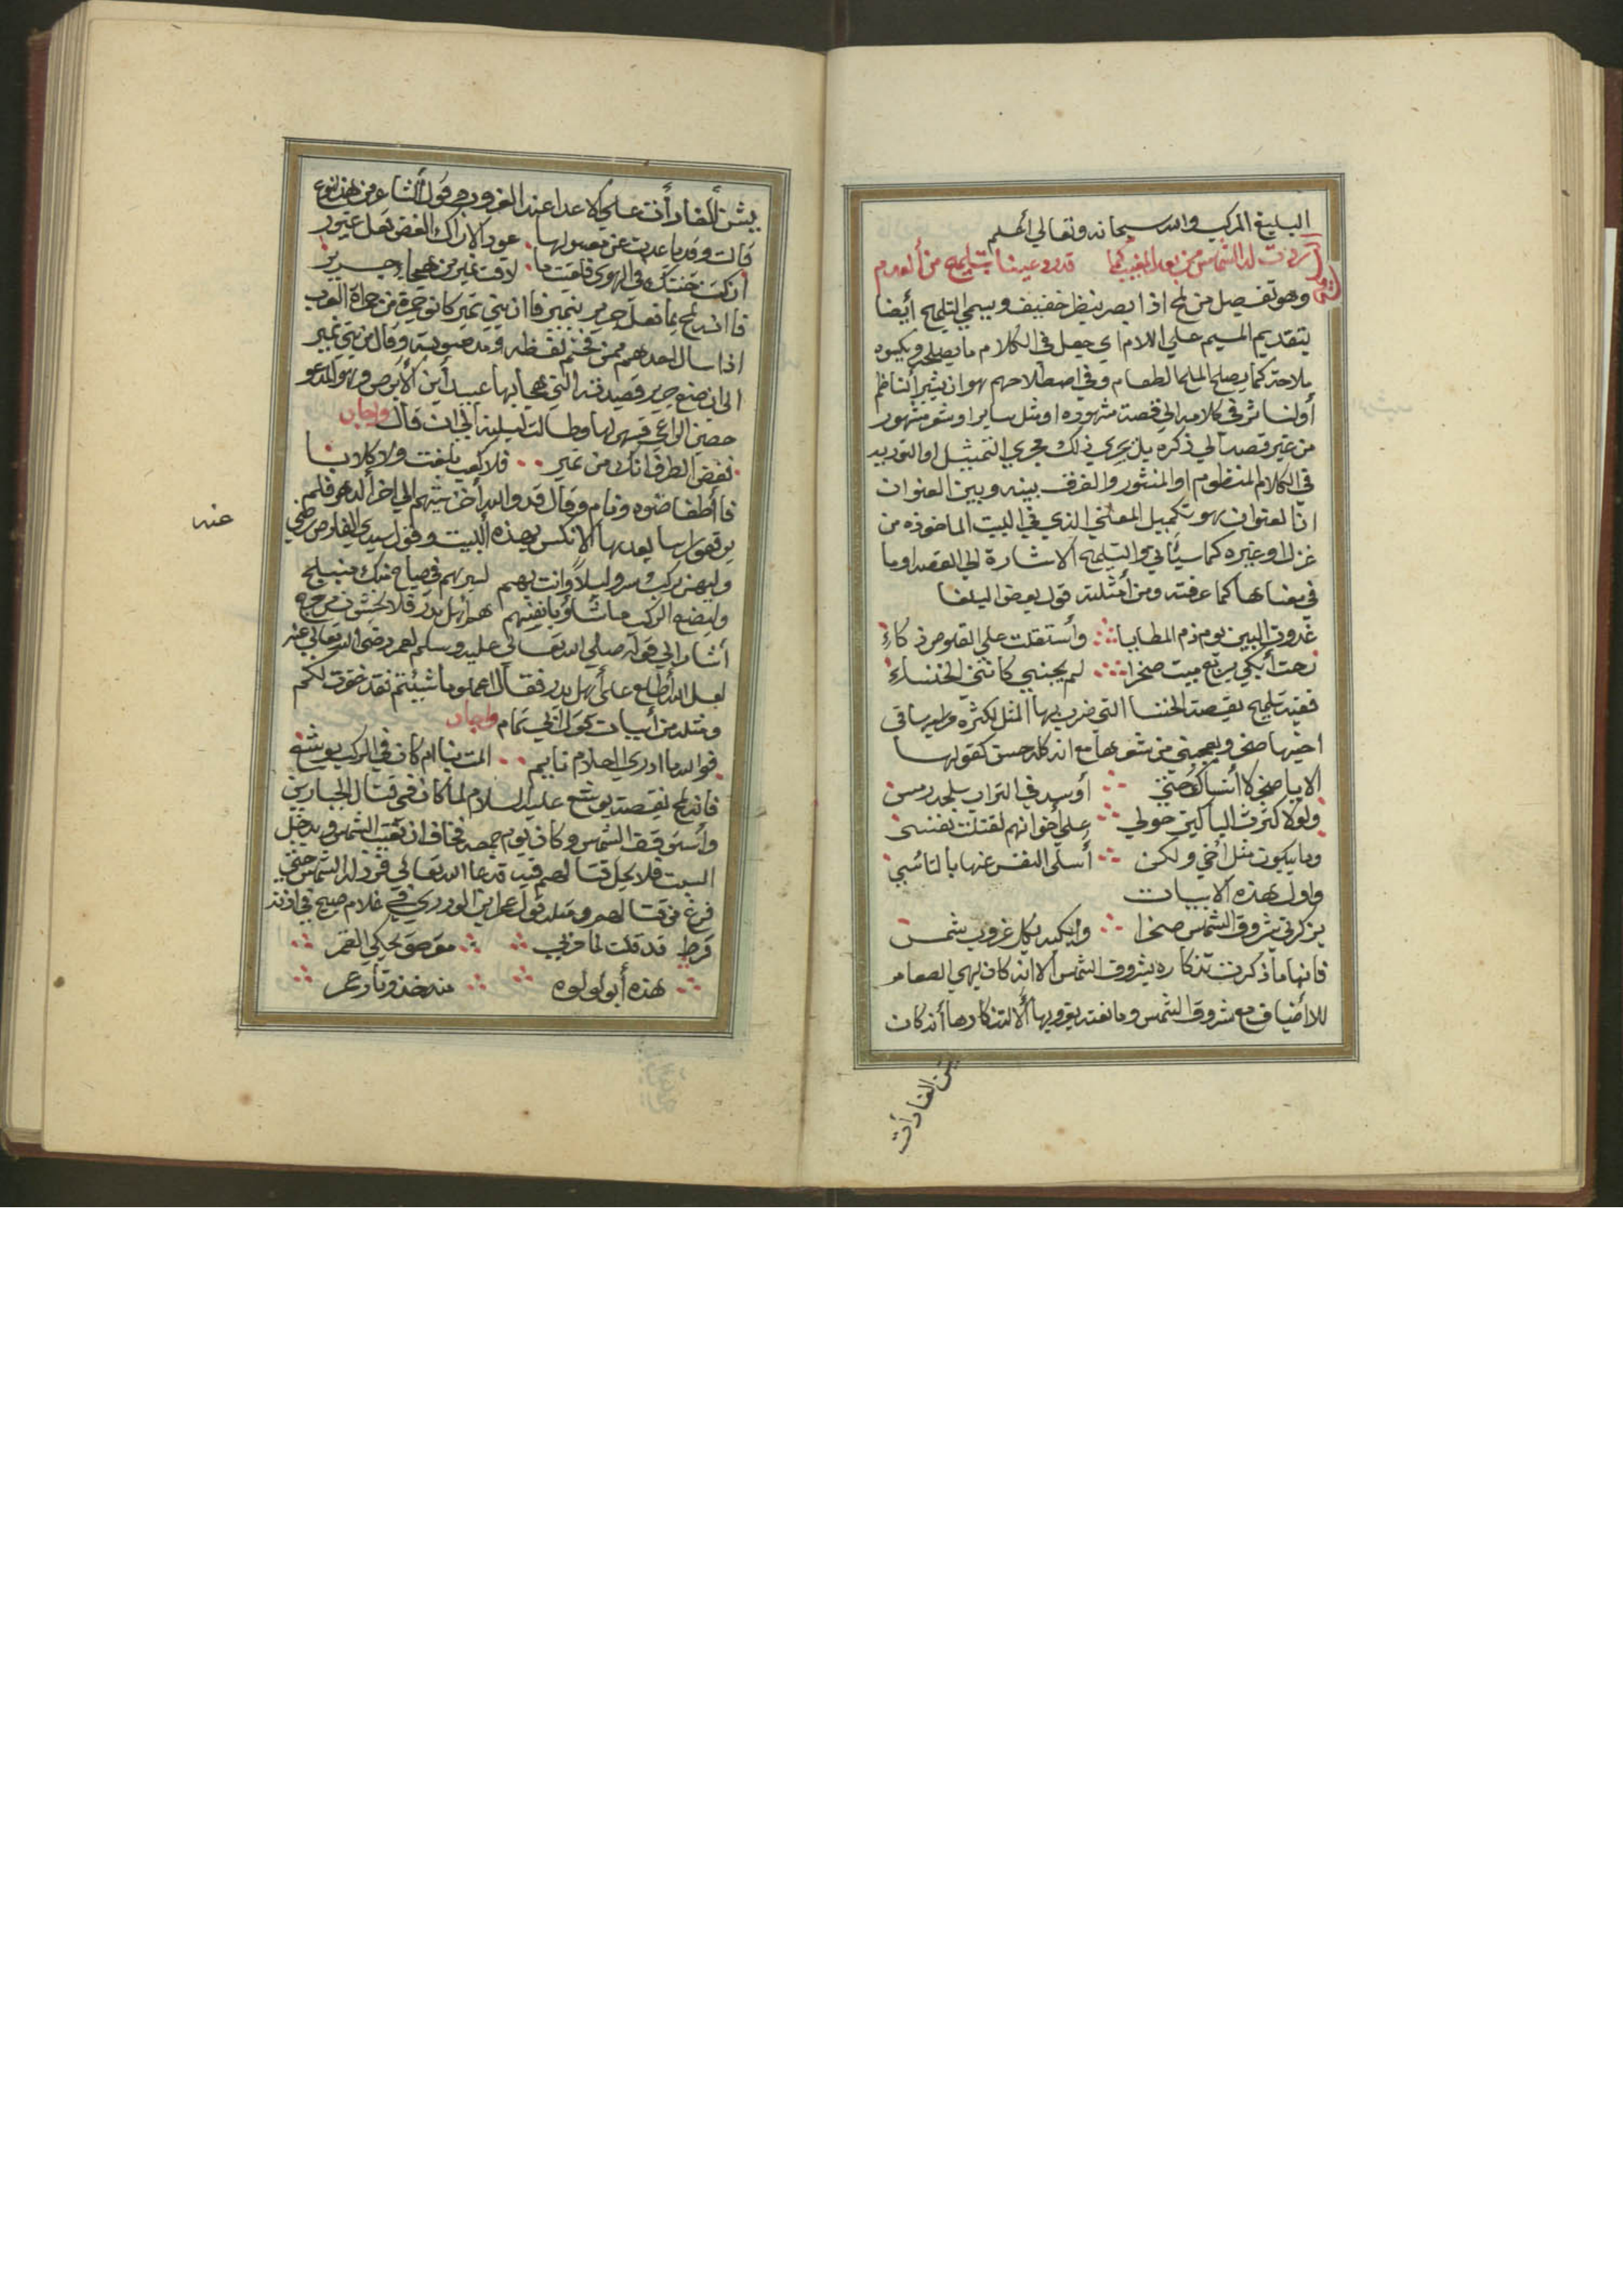 البليغ المركب والله سبحانه وتعالي أعلم
ردت له الشمس من بعد المغيب كما قدرد عينا بتلميح من ألعدم
وهو تفصيل من لمح اذا ابصر بنظر خفيف ويسمي التلميح أيضا
بتقديم الميم علي اللام اي جعل في الكلام ما يصلحه ويكسوه
ملاحة كما يصلح الملح الطعام وفي اصطلاحهم هو ان يشير ألناظم
أو لناثر في كلامه الي قصة مشهوره او مثل ساير او شعر مشهور
من غير قصد الي ذكره بل يجري ذلك مجري التمثيل او التوريه
في الكلام المنظوم او المنثور والفرق بينه وبين العنوان
انّ العنوان هو تكميل المعني الذي في البيت الماخوذه من
غزل او غيره كما سيأتي والتلميح الاشارة الي القصه او ما
في معناها كما عرفته ومن أمثلته قول بعض البلغا
غدوة البين يوم ذم المطايا وأستقلت علي القلوص ذكاءِ
رحت أبكي بربع ميت صخرا لم يجبني كانني الخنساءِ
ففيه تلميح بقصة الخنسا التي ضرب بها المثل لكثرة مراثيها في
اخيها صخر ويعجبني من شعرها مع انه كله حسن كقولها
الا يا صخر لا أنساك حتي أوسد في التراب بلحد رمس
ولولا كثرة الباكين حولي علي أخوانهم لقتلت نفسي
وما يبكون مثل أخي ولكن أسلي النفس عنها بالتاسي
واول هذه الابيات
يذكرني شروق الشمس صخرا وابكيه بكل غروب شمس
فانها ما ذكرت تذكاره بشروق الشمس الا انه كان يهي الطعام
للاضياف مع شروق الشمس وما نعته بغروبها ألا لتذكارها أنه كان
يشن الغارات
يشن ألغارات علي الاعدا عند الغروب ومن قول ألشاعر من هذا النوع
قالت وقد ما عديت عن معسولها عود الاراك الغض فعل غيور
ان كنت خنتك في الهوي فلقيت ما لاقت نمير من هجا وجرير
فاانه لمح بما فعل جرير بنمير فاان بني نمير كانو جمرة من جمرات العرب
اذا سال احدهم ممن فخم لفظه ومد صوبته وقال من بني نمير
الي ان صنع جرير قصيدته التي هجا بها عبيد أبن الابرص وهو المدعو
حصين الراعي فسهر لها وطالت ليلته الي ان قال واجاد
فغض الطرف انك من نمير فلا كعب بلغت ولا كلابا
فاأطفا ضوه ونام وقال قد والله أخزيتهم الي اخر الدهر فلم
يرفعو راسا بعدها الا نكس بهذه البيت وقول سيدي الفارض رضي
عنه
وليهن ركب سروا ليلاً وانت بهم لسيرهم في صباح منك منبلج
وليصنع الركب ما شاؤ بانفسهم هم اهل بدر فلا يخشون من حرج
أشار الي قوله صلي الله تعالي عليه وسلم لعمر رضي الله تعالي عنه
لعل الله أطلع علي أهل بدر فقال اعملو ما شئتم فقد غفرت لكم
ومثله من أبيات قول ابي تمام واجاد
فوالله ما ادري احلام نايم المت بنا ام كان في الركب يوشع
فانه لمح بقصة يوشع عليه السلام لما كان في قتال الجبارين
وأستوقف الشمس وكان يوم جمعه فخاف ان تغيب الشمس ويدخل
السبت فلا يحل قتالهم فيه فدعا الله تعالي فرد له الشمس حتي
فرغ من قتالهم ومثله قول عمر ابن الوردي في غلام صبيح في اذنه
قرط قد قلت لما مر بي مقرطق يحكي القمر
هذه أبو لولوه منه خذو ثار عمر